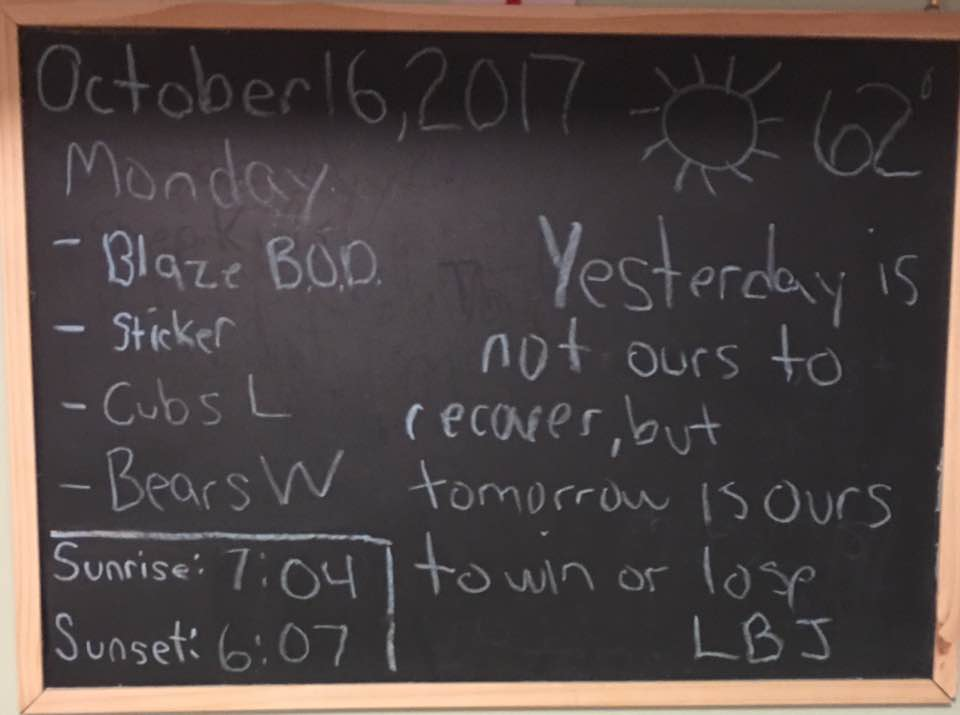 October 16, 2017
62°
Monday
- Blaze B.O.D.
- Sticker
- Cubs L
- Bears W
Sunrise: 7:04
Sunset: 6:07
Yesterday is
not ours to
recover, but
tomorrow is ours
to win or lose
LBJ